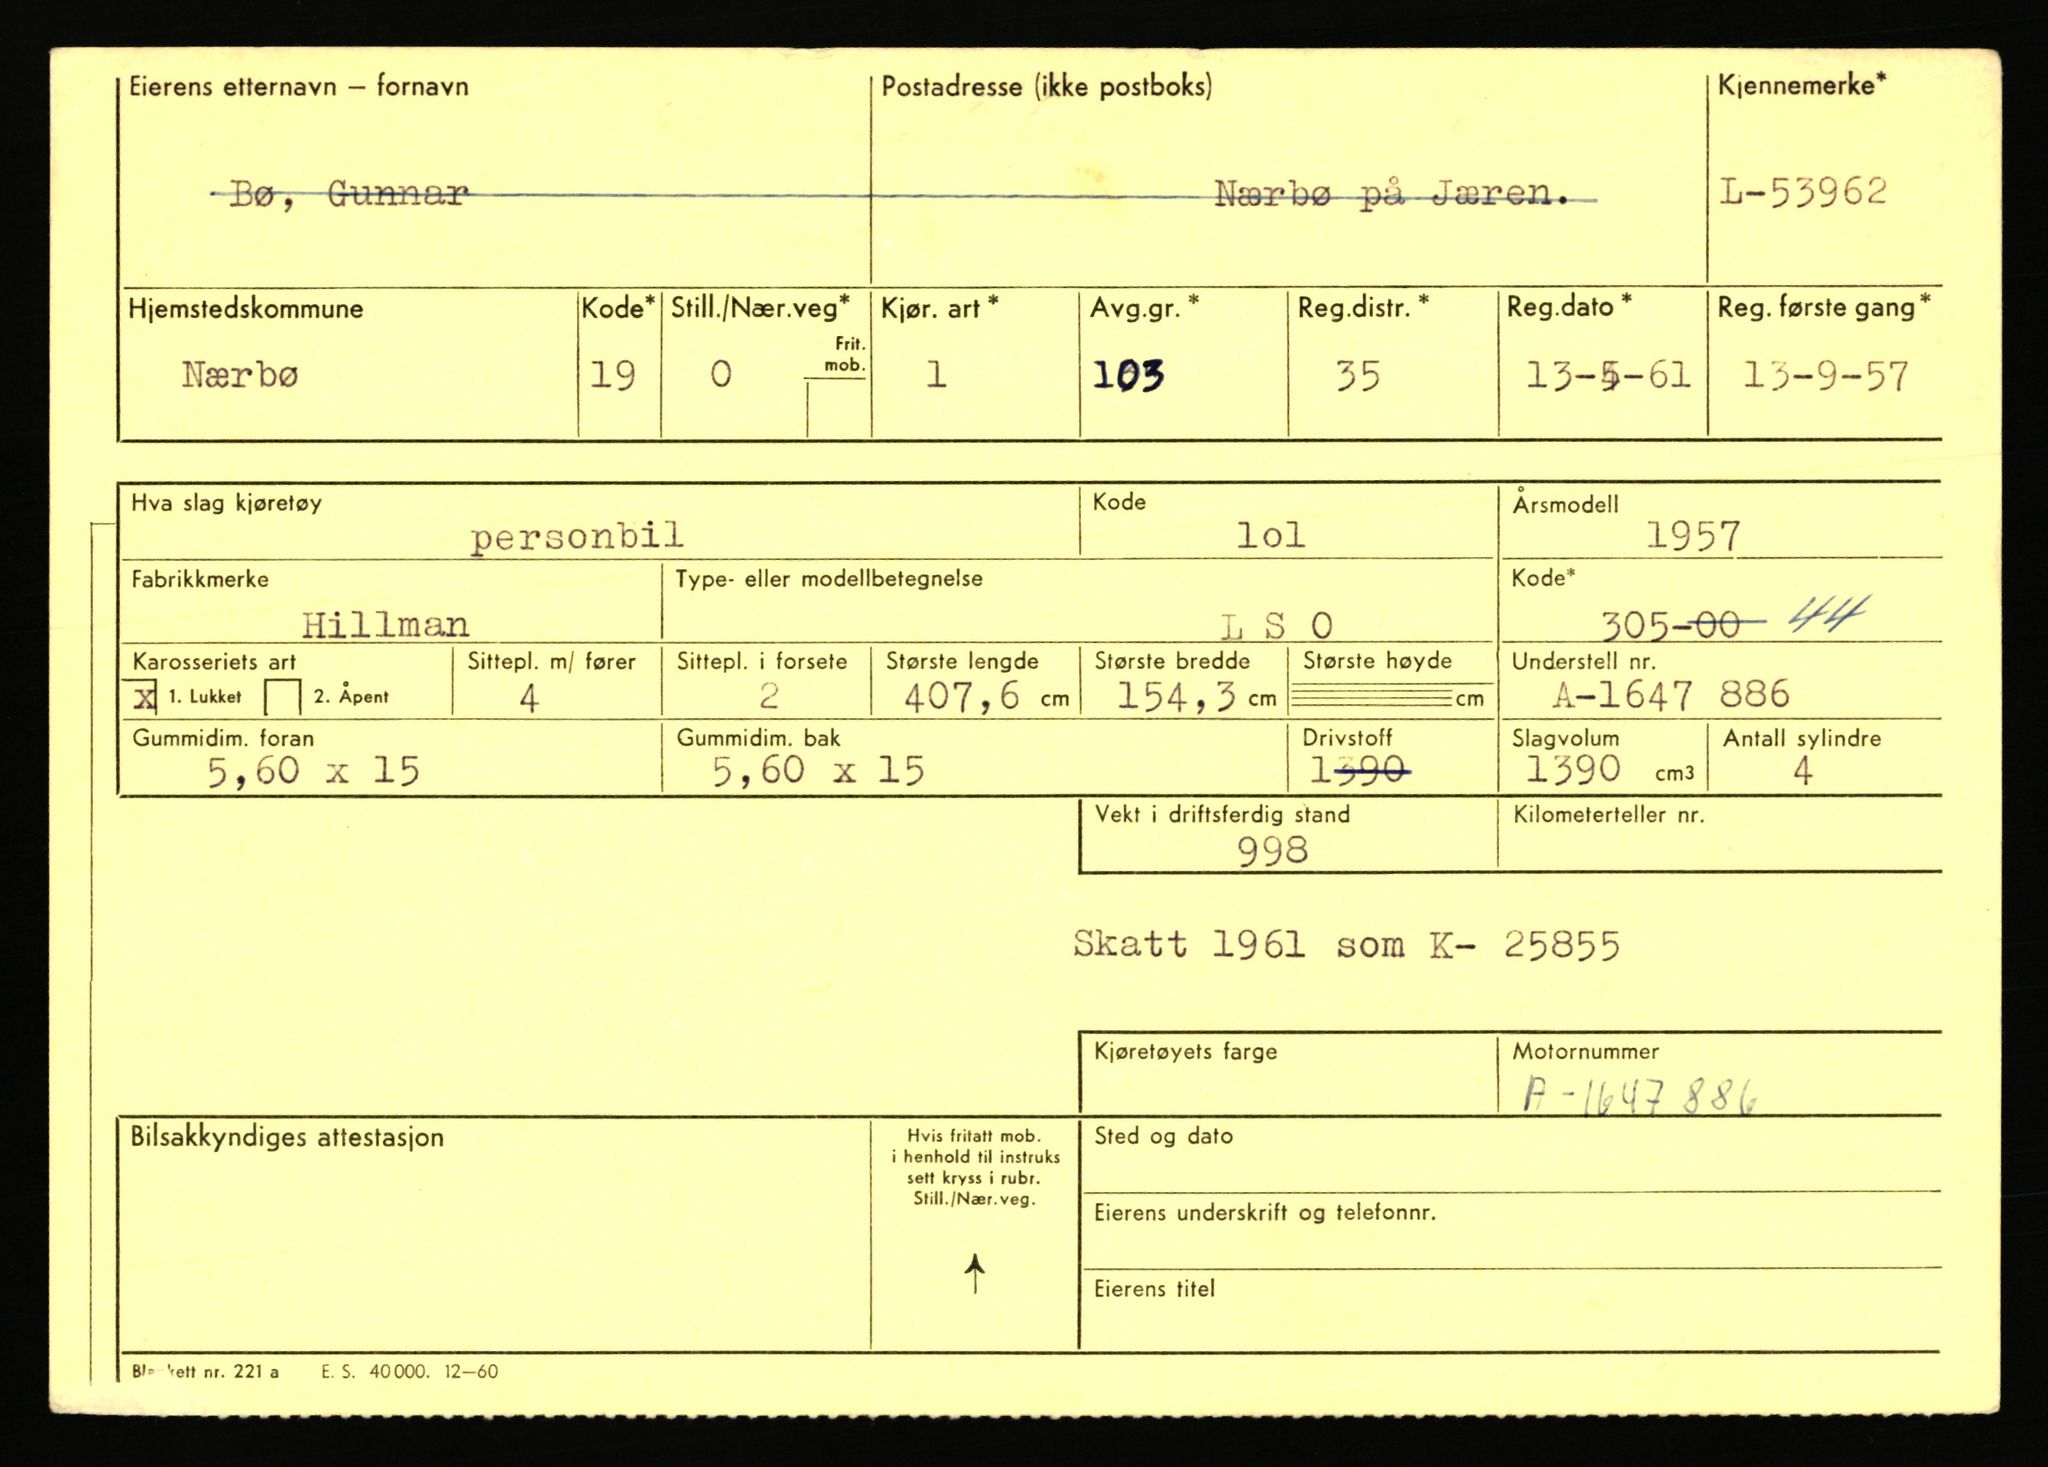 Eierens etternavn – fornavn Postadresse (ikke postboks) Kjennemerke*
Bø, Gunnar Nærbø på Jæren. L-53962
Hjemstedskommune Kode* Still./Nær.veg* Kjør. art* Avg.gr.* Reg.distr.* Reg.dato* Reg. første gang*
Frit.
mob.
Nærbø 19 0 1 103 35 13-5-61 13-9-57
Hva slag kjøretøy Kode Årsmodell
personbil lol 1957
Fabrikkmerke Type- eller modellbetegnelse Kode*
Hillman L S O 305-00 44
Karosseriets art Sittepl. m/ fører Sittepl. i forsete Største lengde Største bredde Største høyde Understell nr.
x 1. Lukket 2. Åpent 4 2 407,6 cm 154,3 cm cm A-1647 886
Gummidim. foran Gummidim. bak Drivstoff Slagvolum Antall sylindre
5,60 x 15 5,60 x 15 1390 1390 cm3 4
Vekt i driftsferdig stand Kilometerteller nr.
998
Skatt 1961 som K- 25855
Kjøretøyets farge Motornummer
A-1647 886
Bilsakkyndiges attestasjon Hvis fritatt mob. Sted og dato
i henhold til instruks
sett kryss i rubr.
Still./Nær.veg.
Eierens underskrift og telefonnr.
Eierens titel
Blankett nr. 221 a E. S. 40 000. 12–60